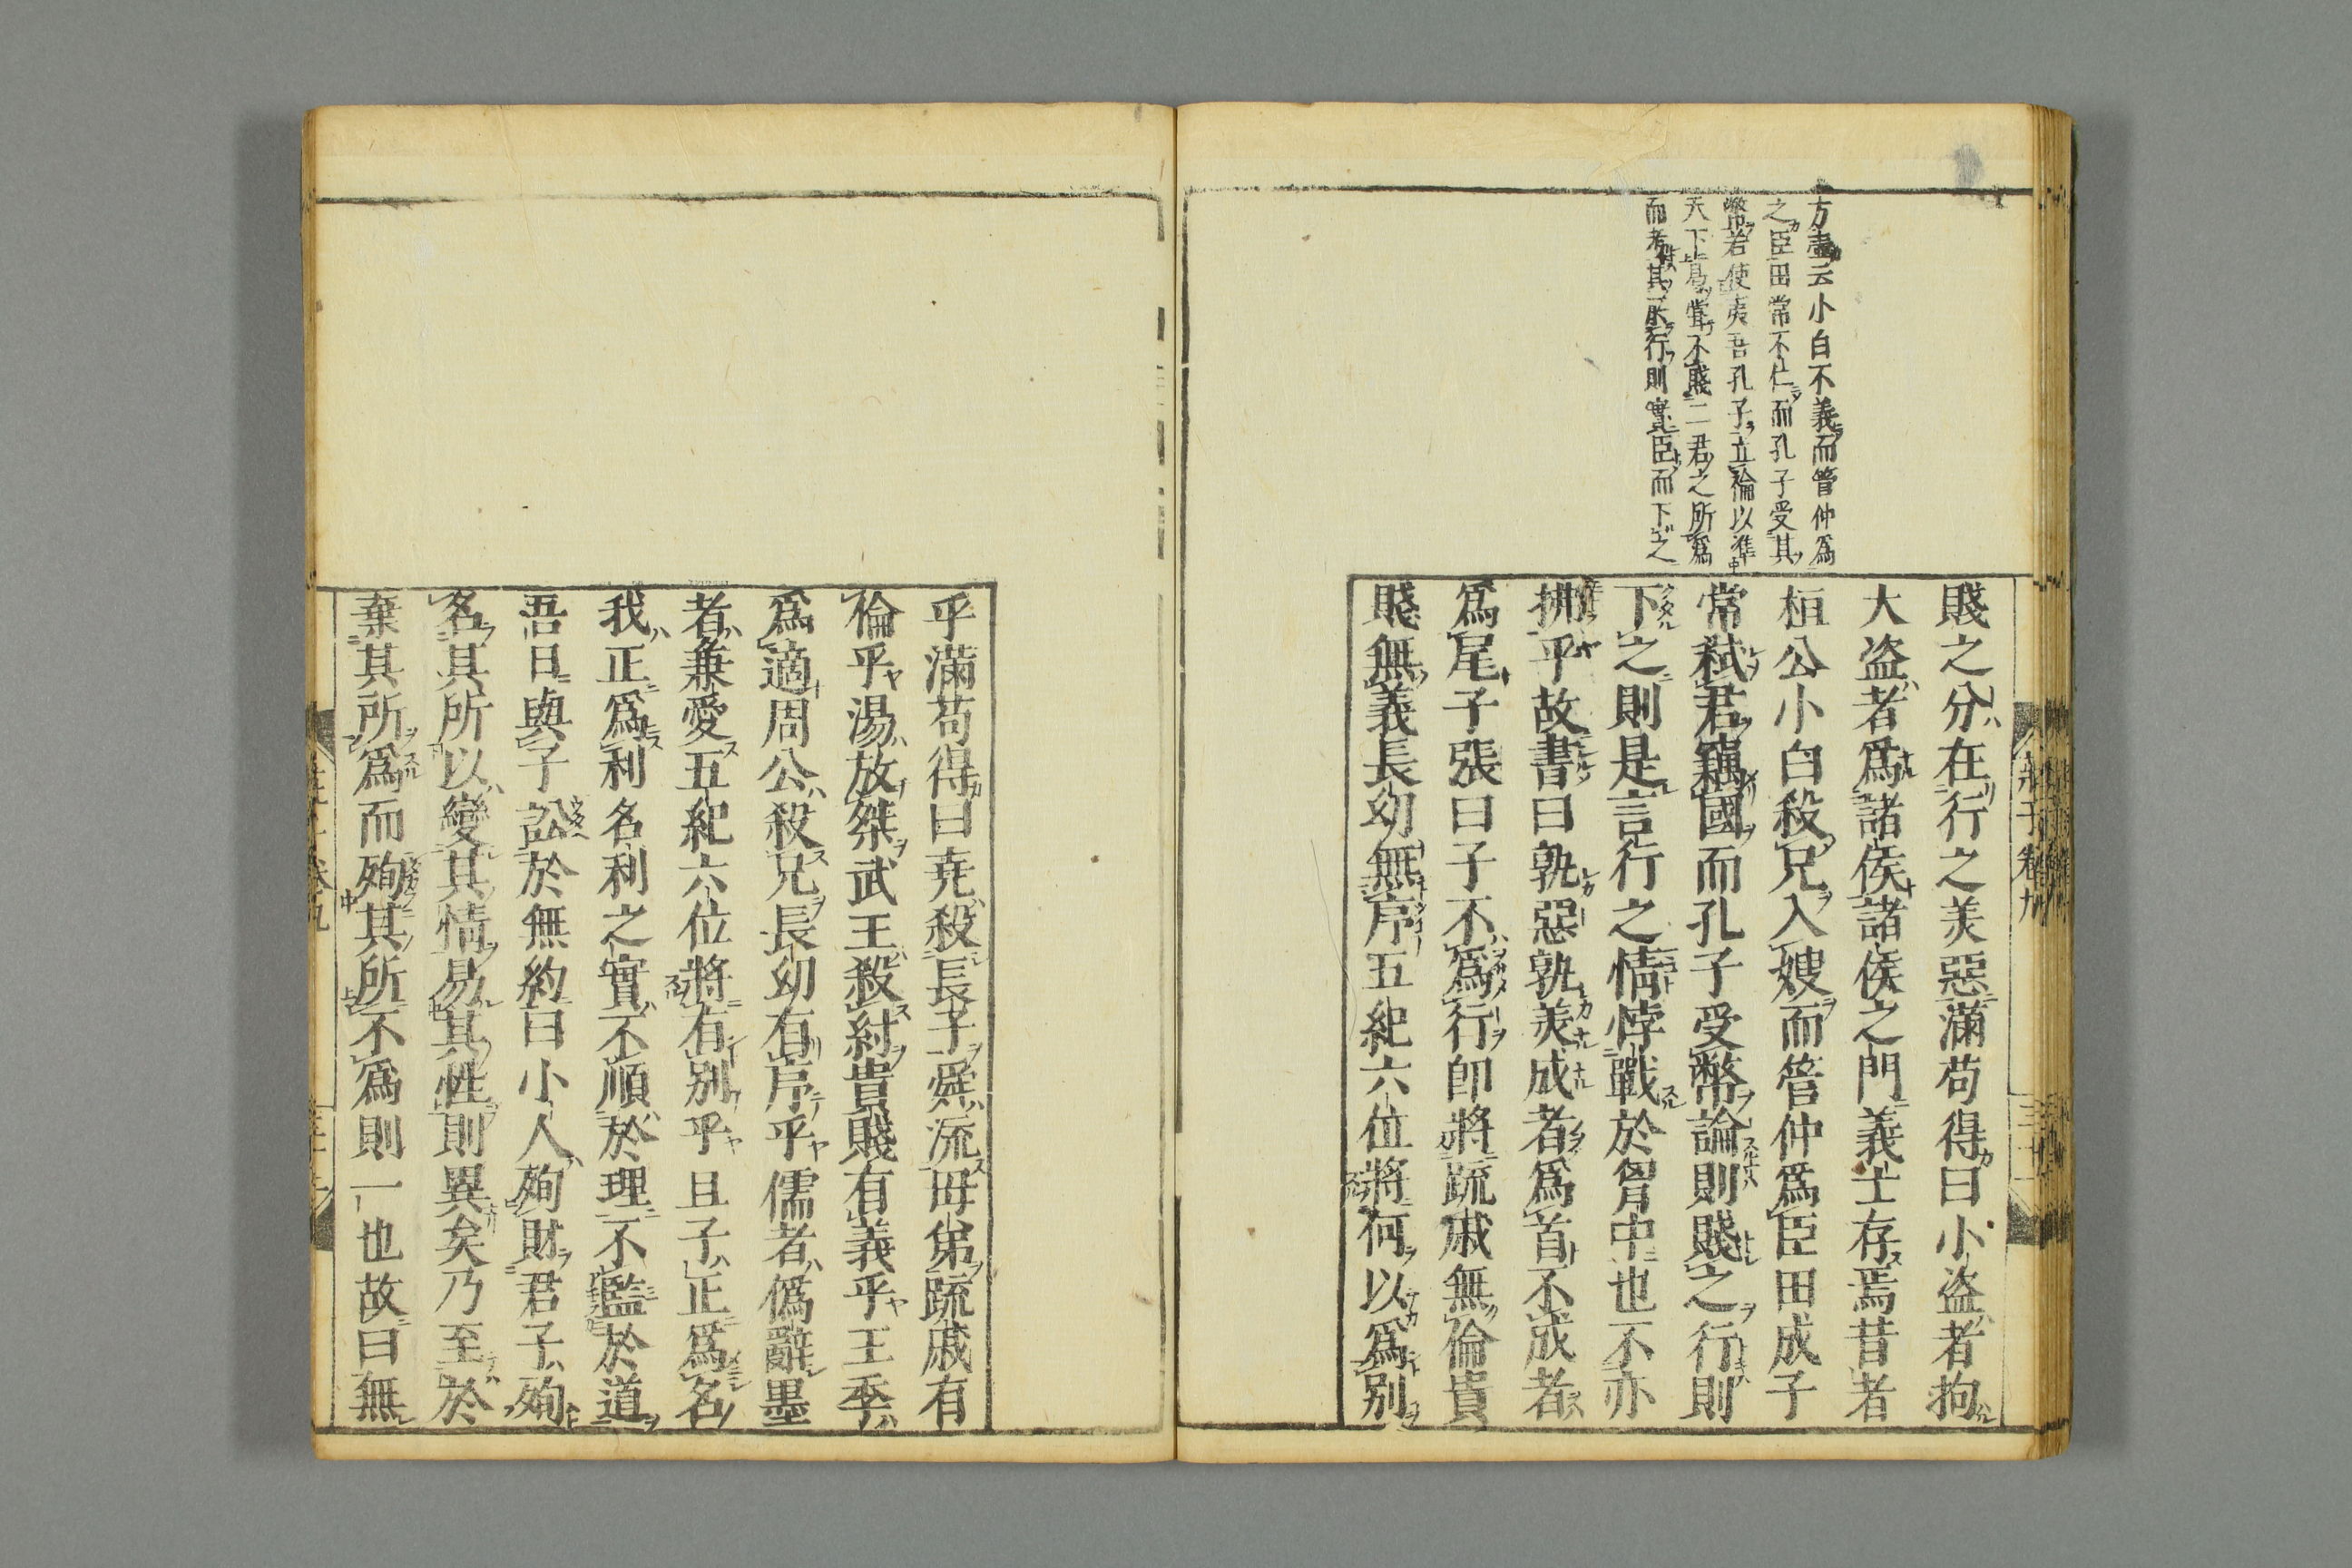 方壺云小白不義而管仲爲
之臣田常不仁而孔子受其
幣若使夷吾孔子立論以準
天下曷嘗不賤二君之所爲
而考其所行則實臣而下之
賤之分在行之美惡滿苟得曰小盗者拘
大盗者爲諸侯諸侯之門義士存焉昔者
桓公小白殺兄入嫂而管仲爲臣田成子
常弑君竊國而孔子受幣論則賤之行則
下之則是言行之情悖戰於胷中也不亦
拂乎故書曰孰惡孰美成者爲首不成者
爲尾子張曰子不爲行卽將疏戚無倫貴
賤無義長幼無序五紀六位將何以爲別
莊子卷九
乎滿苟得曰堯殺長子舜流毋弟疏戚有
倫乎湯放桀武王殺紂貴賤有義乎王季
爲適周公殺兄長幼有序乎儒者僞辭墨
者兼愛五紀六位將有別乎且子正爲名
我正爲利名利之實不順於理不監於道
吾日與子訟於無約曰小人殉財君子殉
名其所以變其情易其性則異矣乃至於
棄其所爲而殉其所不爲則一也故曰無